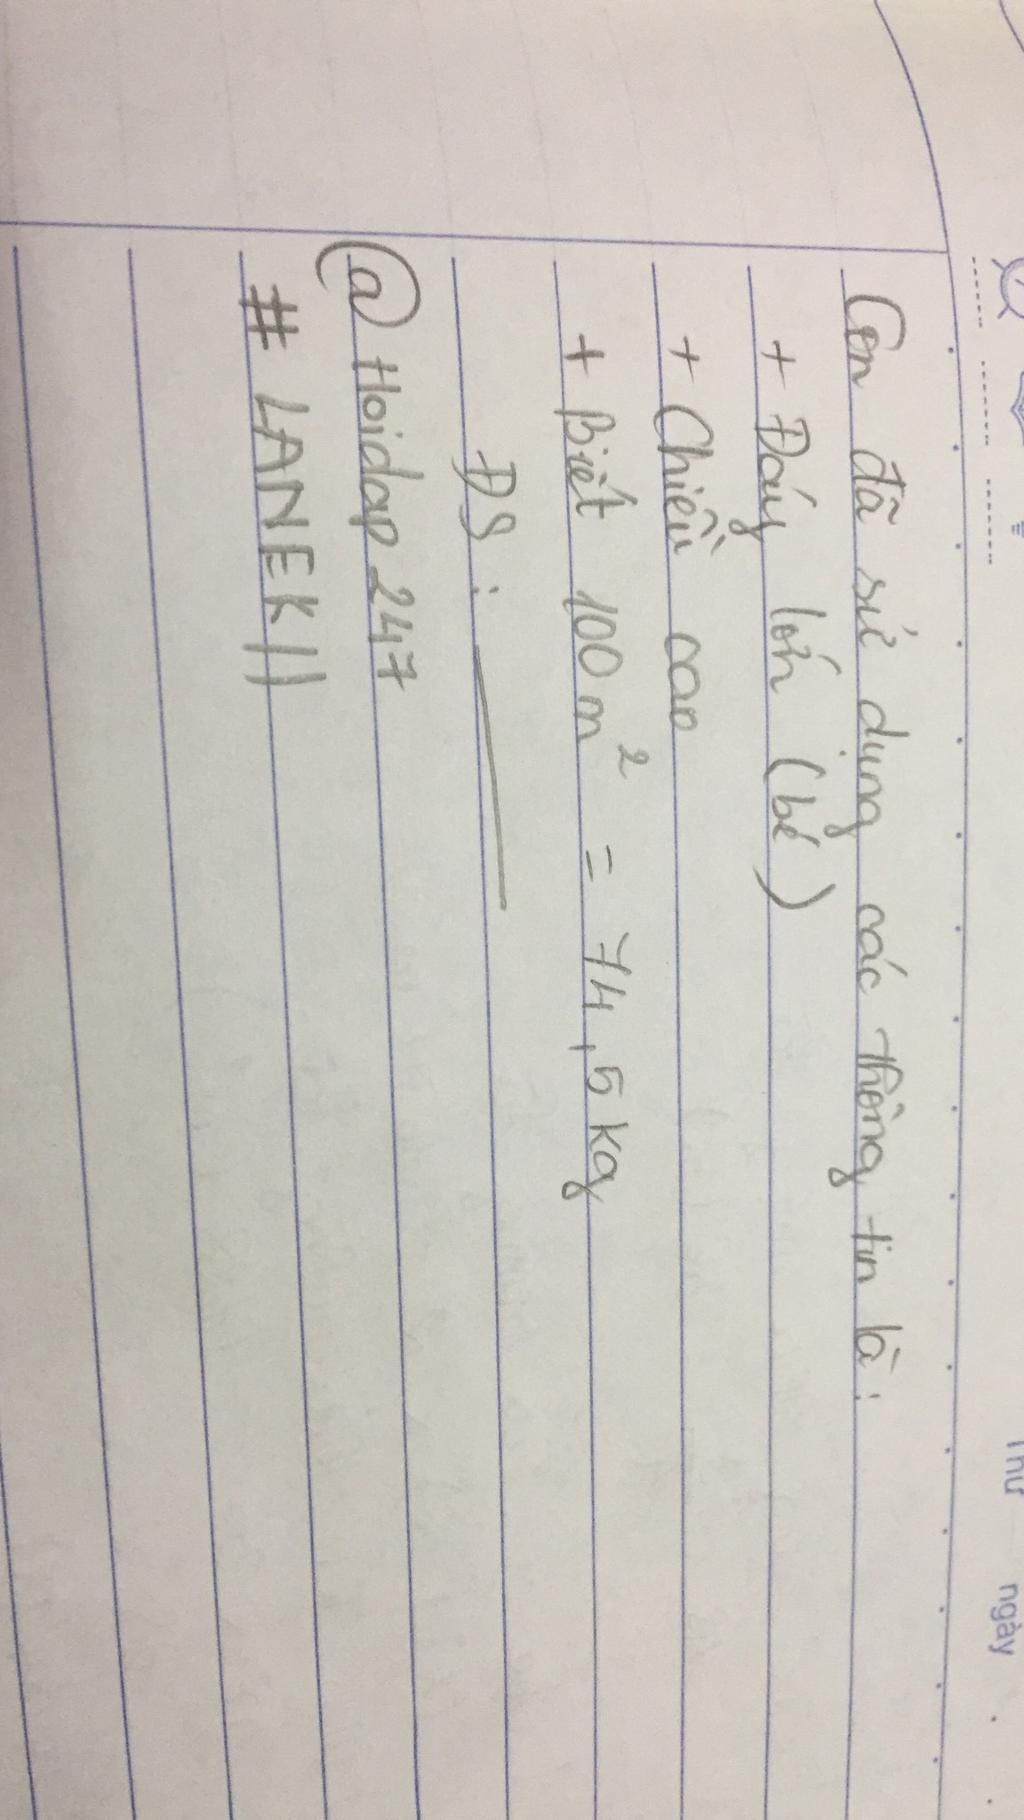 Thứ ngày
Con đã sử dụng các thông tin là:
+ Đáy lớn (bé)
+ Chiều cao
+ Biết 100m² = 74,5kg
ĐS:
@Hoidap247
# LANEK||